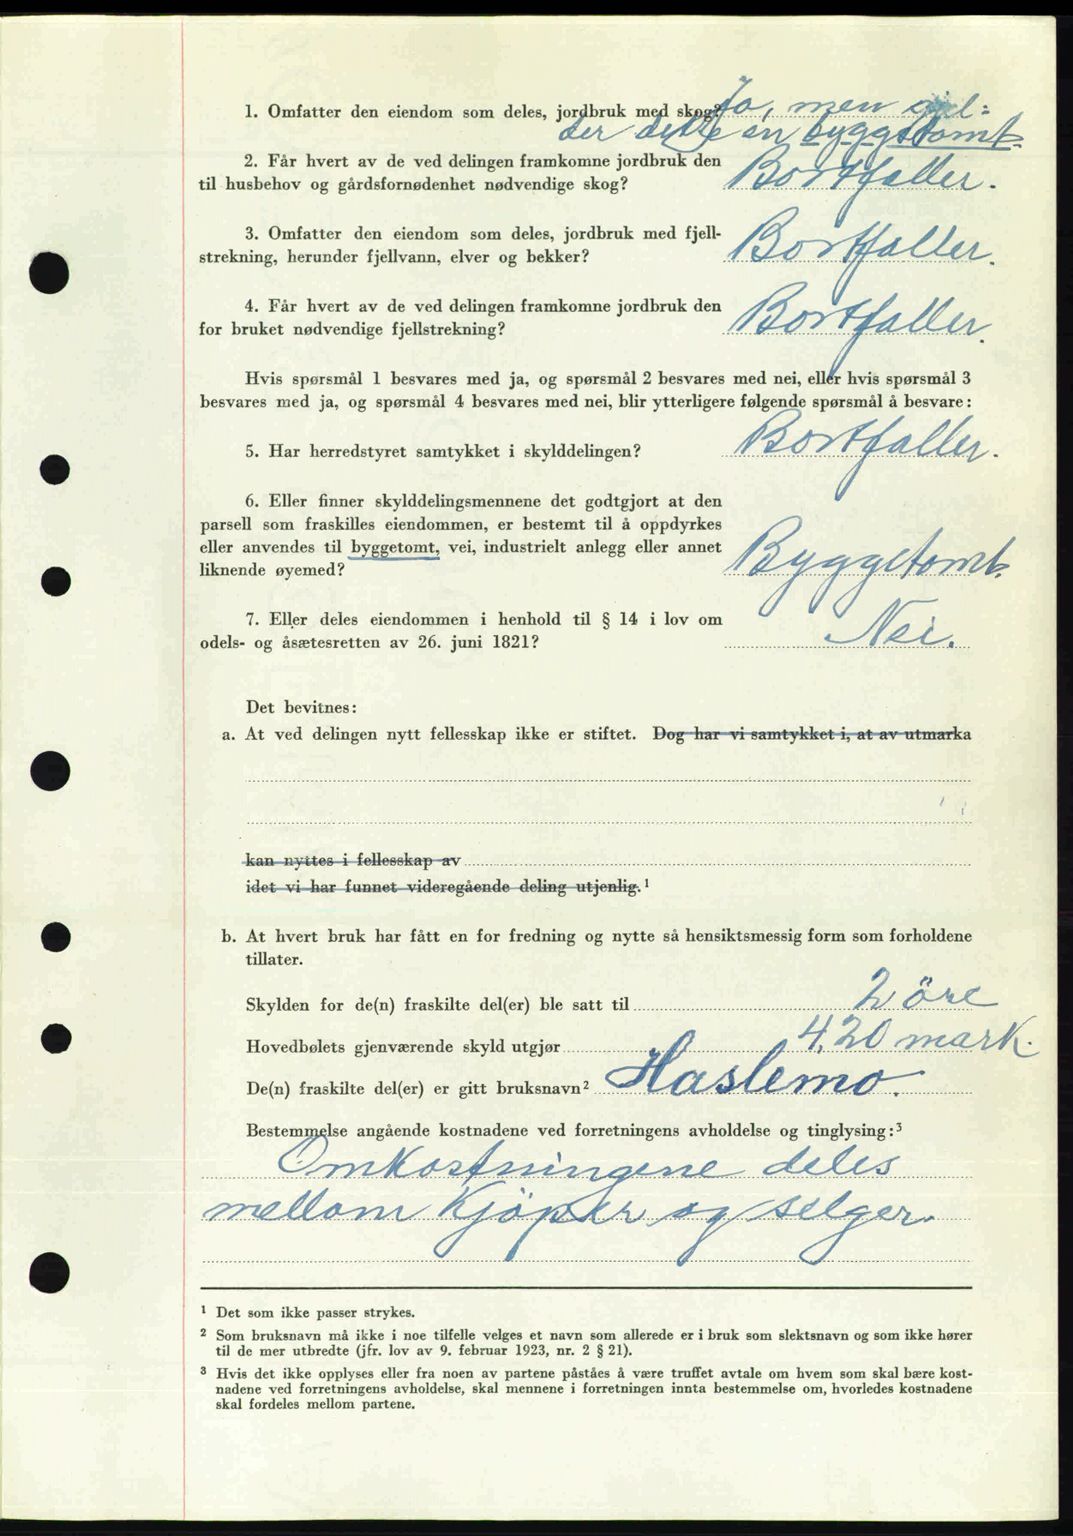 1. Omfatter den eiendom som deles, jordbruk med skog? Ja, men gjel-
der dette en byggetomt.
2. Får hvert av de ved delingen framkomne jordbruk den
til husbehov og gårdsfornødenhet nødvendige skog? Bortfaller.
3. Omfatter den eiendom som deles, jordbruk med fjell-
strekning, herunder fjellvann, elver og bekker? Bortfaller.
4. Får hvert av de ved delingen framkomne jordbruk den
for bruket nødvendige fjellstrekning? Bortfaller.
Hvis spørsmål 1 besvares med ja, og spørsmål 2 besvares med nei, eller hvis spørsmål 3
besvares med ja, og spørsmål 4 besvares med nei, blir ytterligere følgende spørsmål å besvare:
5. Har herredstyret samtykket i skylddelingen? Bortfaller.
6. Eller finner skylddelingsmennene det godtgjort at den
parsell som fraskilles eiendommen, er bestemt til å oppdyrkes
eller anvendes til byggetomt, vei, industrielt anlegg eller annet
liknende øyemed? Byggetomt.
7. Eller deles eiendommen i henhold til § 14 i lov om
odels- og åsætesretten av 26. juni 1821? Nei.
Det bevitnes:
a. At ved delingen nytt fellesskap ikke er stiftet. Dog har vi samtykket i, at av utmarka
kan nyttes i fellesskap av
idet vi har funnet videregående deling utjenlig.¹
b. At hvert bruk har fått en for fredning og nytte så hensiktsmessig form som forholdene
tillater.
Skylden for de(n) fraskilte del(er) ble satt til 2 öre
Hovedbølets gjenværende skyld utgjør 4,20 mark.
De(n) fraskilte del(er) er gitt bruksnavn² Haslemo.
Bestemmelse angående kostnadene ved forretningens avholdelse og tinglysing:³
Omkostningene deles
mellom kjöper og selger.
¹ Det som ikke passer strykes.
² Som bruksnavn må ikke i noe tilfelle velges et navn som allerede er i bruk som slektsnavn og som ikke hører
til de mer utbredte (jfr. lov av 9. februar 1923, nr. 2 § 21).
³ Hvis det ikke opplyses eller fra noen av partene påståes å være truffet avtale om hvem som skal bære kost-
nadene ved forretningens avholdelse, skal mennene i forretningen innta bestemmelse om, hvorledes kostnadene
skal fordeles mellom partene.